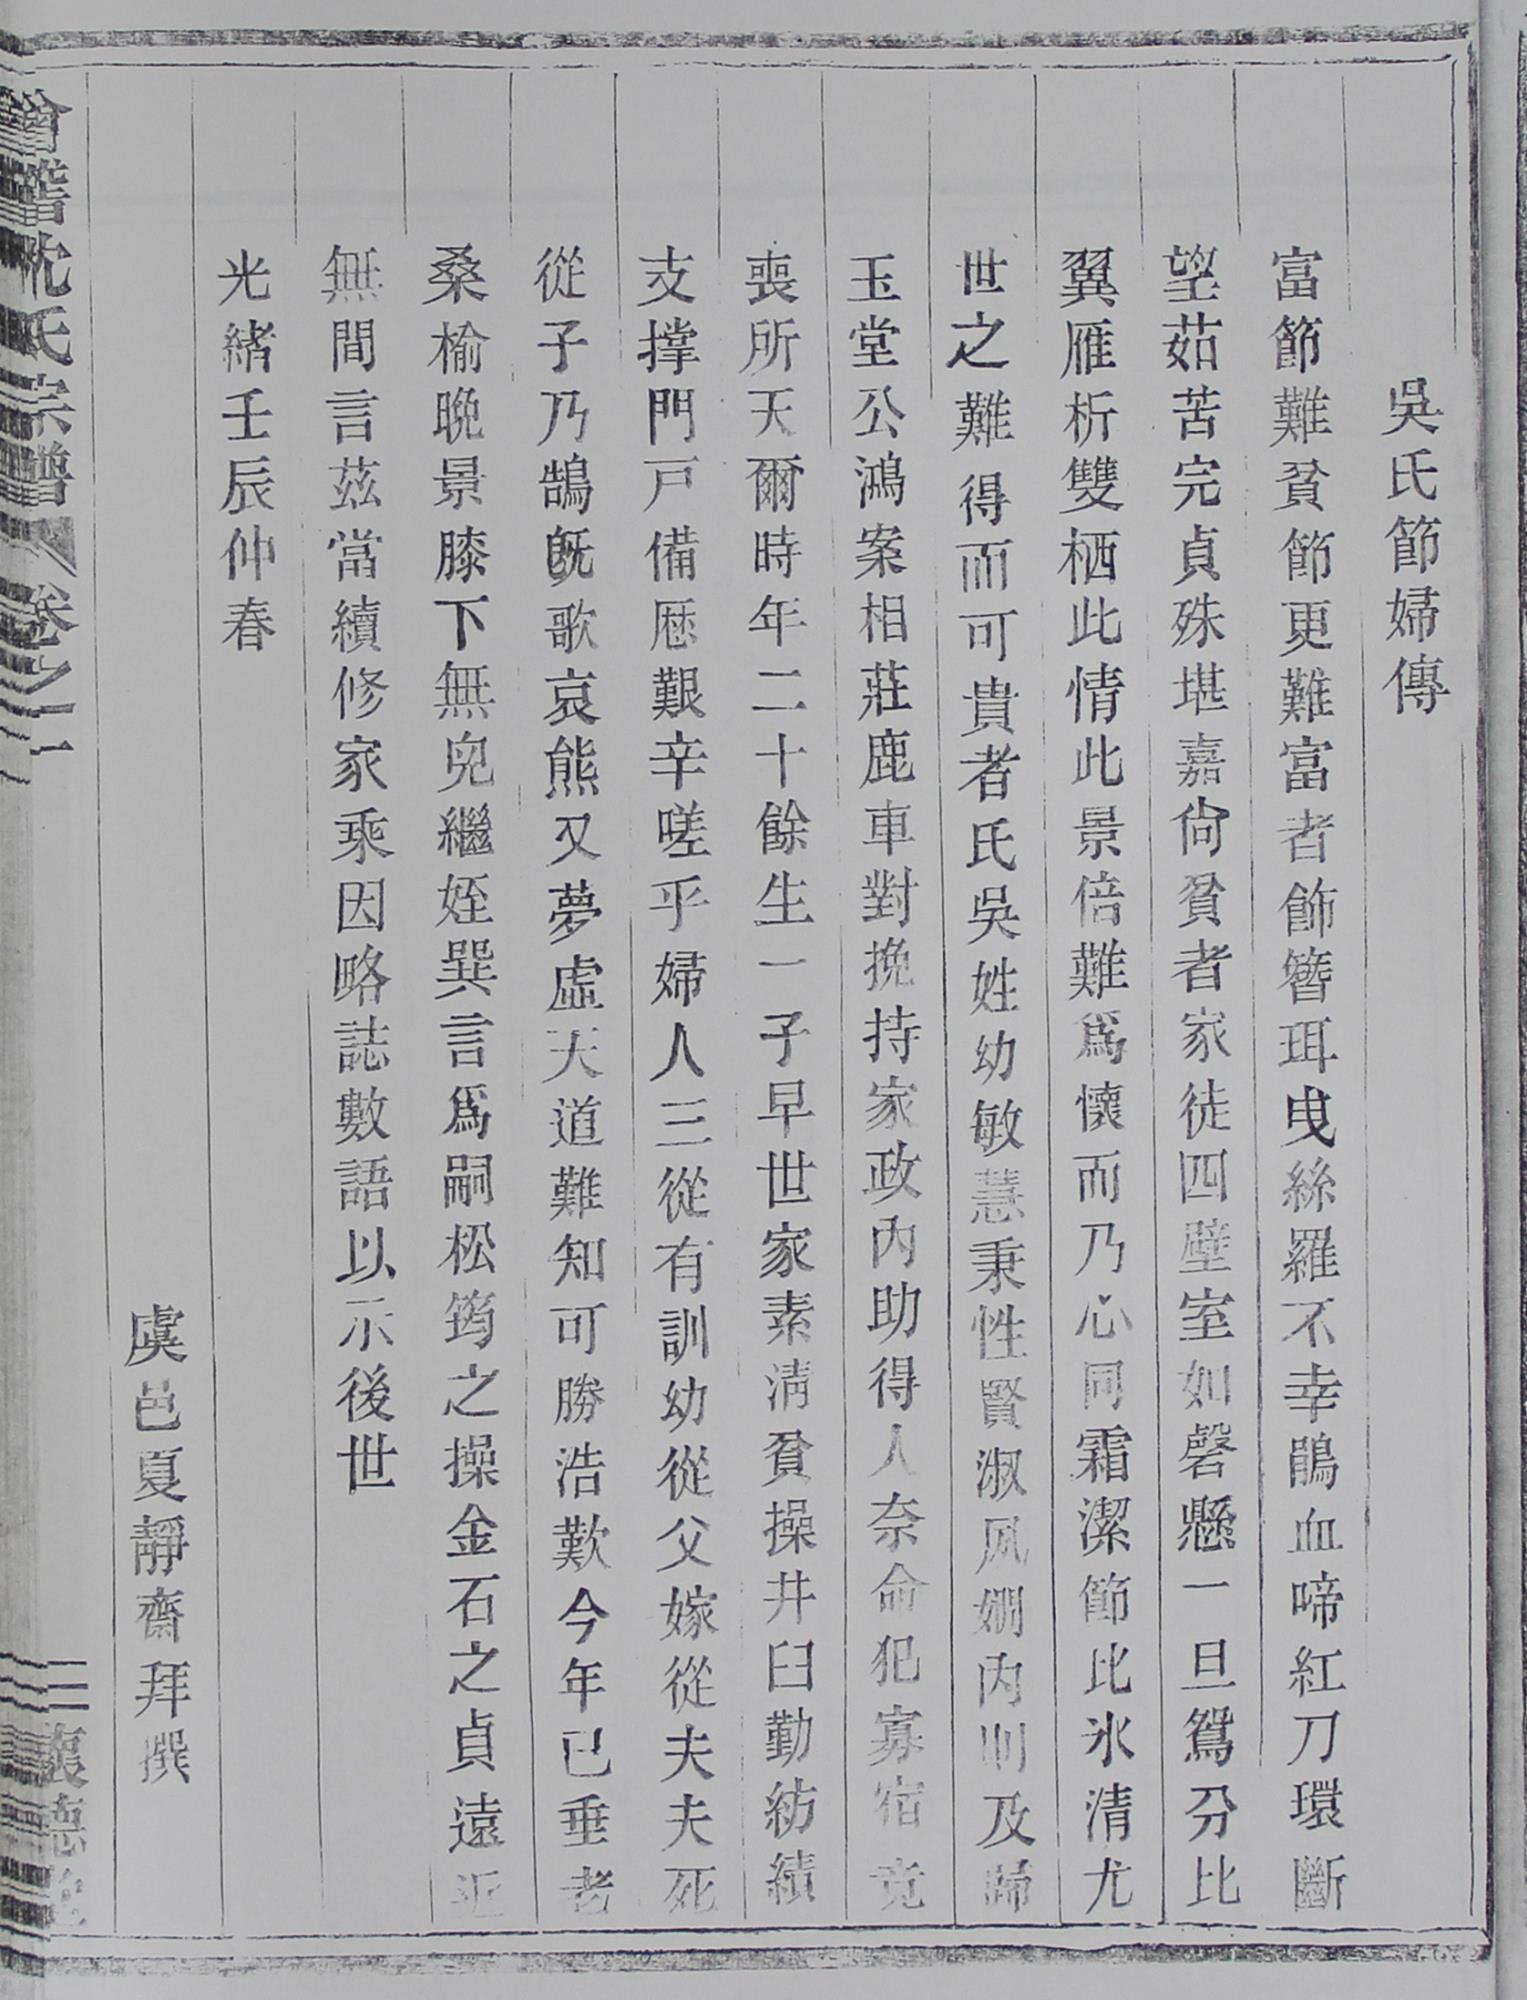 吳氏節婦傳
富節難貧節更難富者飾簪珥曳絲羅不幸鵑血啼紅刀環斷
望茹苦完貞殊堪嘉尙貧者家徒四壁室如磬懸一旦鴛分比
翼雁析雙栖此情此景倍難爲懷而乃心同霜潔節比氷清尤
世之難得而可貴者氏吳姓幼敏慧秉性賢淑夙嫺內則及歸
玉堂公鴻案相莊鹿車對挽持家政內助得人奈命犯寡宿竟
喪所天爾時年二十餘生一子早世家素淸貧操井臼勤紡績
支撑門戸備厯艱辛嗟乎婦人三從有訓幼從父嫁從夫夫死
從子乃鵠旣歌哀熊又夢虛天道難知可勝浩歎今年已垂老
桑榆晚景膝下無兒繼姪巽言爲嗣松筠之操金石之貞遠近
無間言茲當續修家乘因略誌數語以示後世
光緒壬辰仲春
虞邑夏靜齋拜撰
會稽沈氏宗譜 卷之二